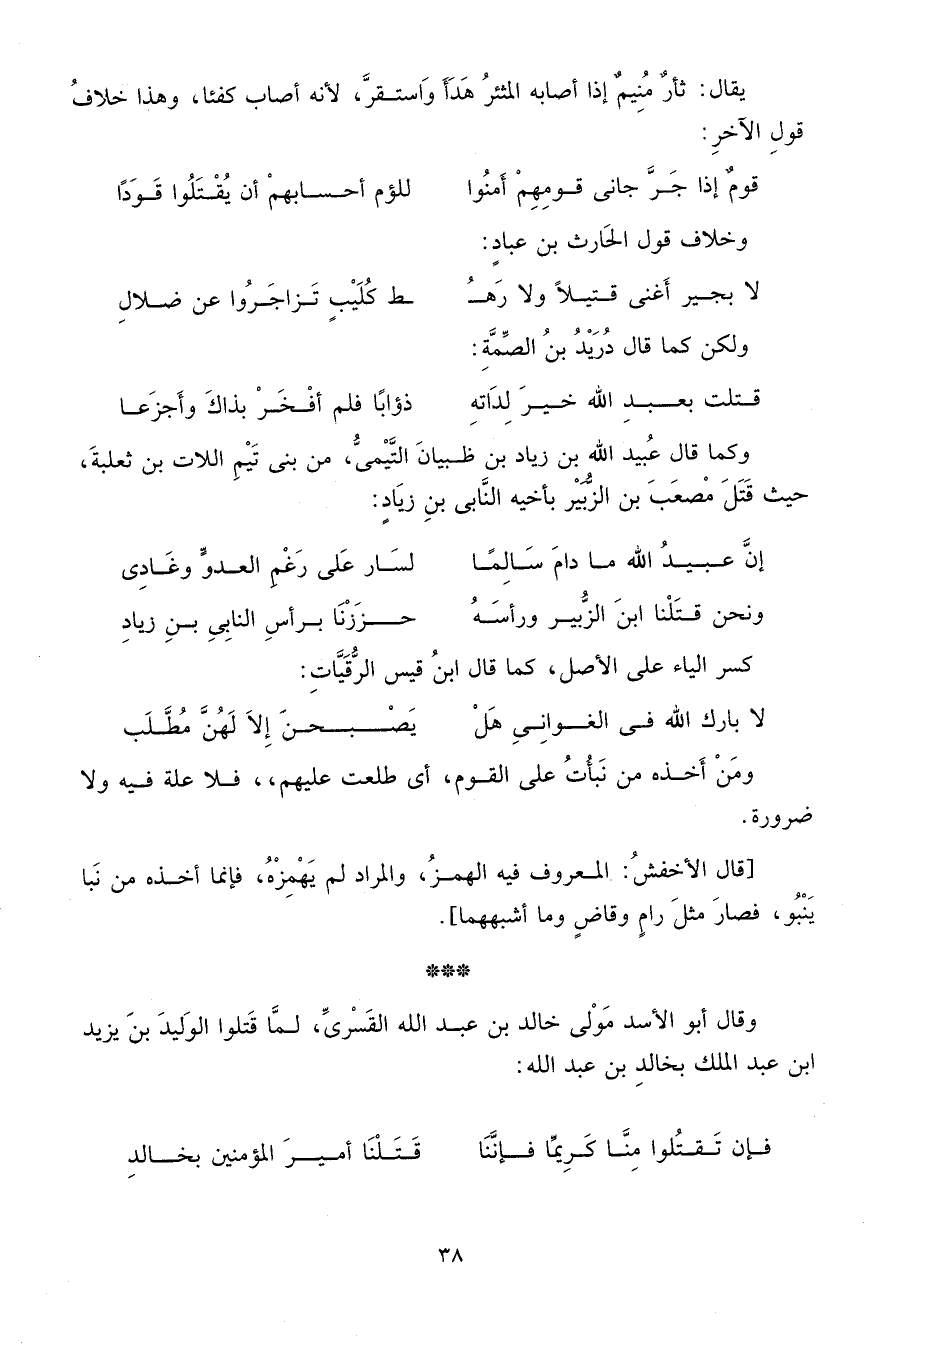 يقال: ثأرٌ مُنِيمٌ إذا أصابه المثئرُ هَدَأَ وَاستـقرَّ، لأنه أصاب كفئا، وهذا خلافُ
قولِ الآخرِ:
قومٌ إذا جَـرَّ جانى قـومِهِمْ أَمنُوا للؤم أحـسابهمْ أن يُقْـتَلُوا قَـوَدًا
وخلاف قول الحَارث بن عبادٍ:
لا بجـير أَغنى قـتيـلاً ولا رَهـْـُ ـط كُلَيْبٍ تَـزاجَـرُوا عن ضـلالِ
ولكن كما قال دُرَيْدُ بنُ الصِّمَّة:
قـتلت بعـبـد الله خـيـرَ لِدَاتِهِ ذؤابًا فلم أفْـخَـرْ بذاكَ وأجزعَـا
وكما قال عُبيد الله بن زياد بن ظَـبيانَ التَّيْمىُّ، من بنى تَيْمِ اللات بن ثعلبة،
حيث قَتَلَ مْصعَبَ بن الزُّبَيْرِ بأخيه النَّابى بنِ زيَادٍ:
إنَّ عـبـيـدُ الله مـا دامَ سَـالِمًـا لسَـار عَلَى رَغْمِ العـدوِّ وغَـادِى
ونحن قـتَلْنا ابنَ الزُّبيـر ورأسَـهُ حـــزَزْنَا بـرأسِ النابِىِ بـنِ زيادِ
كسر الياء على الأصل، كما قال ابنُ قيس الرُّقَيَّاتِ:
لا بارك الله فـى الغـوانِـىِ هَلْ يَصْـــبـــحـنَ إلاَ لَهُنَّ مُطَّلَبُ
ومَنْ أَخـذه من نَبَأْتُ على القـوم، أى طلعت عليهم،، فـلا علة فـيه ولا
ضرورة.
[قال الأخفشُ: المـعروف فيه الهمـزُ، والمراد لم يَهْمِزْهُ، فإنما أخـذه من نَبا
يَنْبُو، فصارَ مثلَ رامٍ وقاضٍ وما أشبههما].
***
وقال أبو الأسد مَوْلى خالد بن عبـد الله القَسْرىِّ، لـمَّا قَتلوا الوَليدَ بنَ يزيد
ابن عبد الملك بخالدِ بن عبد الله:
فـإن تَـقـتُلوا منَّـا كَـرِيمًا فـإنَّنَا قَـتَـلْنَا أمـيـرَ المؤمنين بخـالدِ
٣٨